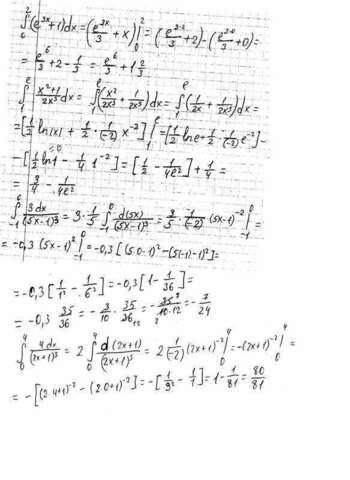 ∫₀² (e³ˣ+1)dx = (e³ˣ/3 + x)|₀² = (e³·²/3 + 2) - (e³·⁰/3 + 0) =
= e⁶/3 + 2 - 1/3 = e⁶/3 + 1 2/3
∫₁ᵉ (x²+1)/(2x³) dx = ∫₁ᵉ (x²/(2x³) + 1/(2x³))dx = ∫₁ᵉ (1/(2x) + 1/(2x³))dx =
= [1/2 ln|x| + 1/2 · 1/(-2) x⁻²]|₁ᵉ = [1/2 ln e + 1/2 · 1/(-2) e⁻²] -
- [1/2 ln 1 - 1/4 1⁻²] = [1/2 - 1/(4e²)] + 1/4 =
= 3/4 - 1/(4e²)
∫₋₁⁰ 3dx/(5x-1)³ = 3 · 1/5 ∫₋₁⁰ d(5x)/(5x-1)³ = 3/5 · 1/(-2) (5x-1)⁻²|₋₁⁰ =
= -0,3 (5x-1)⁻²|₋₁⁰ = -0,3 [(5·0-1)⁻² - (5(-1)-1)⁻²] =
= -0,3 [1/1² - 1/6²] = -0,3 [1 - 1/36] =
= -0,3 35/36 = - 3/10 · 35/36 = - 35/(10·12) = - 7/24
∫₀⁴ 4dx/(2x+1)³ = 2 ∫₀⁴ d(2x+1)/(2x+1)³ = 2 1/(-2) (2x+1)⁻²|₀⁴ = -(2x+1)⁻²|₀⁴ =
= -[(2·4+1)⁻² - (2·0+1)⁻²] = -[1/9² - 1/1] = 1 - 1/81 = 80/81